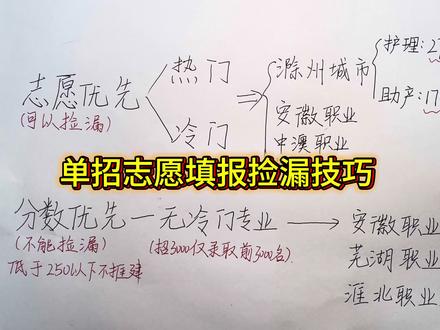 护理:2
热门
滁州城市
志愿优先
助产:17
(可以捡漏)
安徽职业
冷门
中澳职业
单招志愿填报捡漏技巧
分数优先—无冷门专业
安徽职业
(不能捡漏)
(招3000仅录取前3000名)
芜湖职业
低于250以下不推建
淮北职业